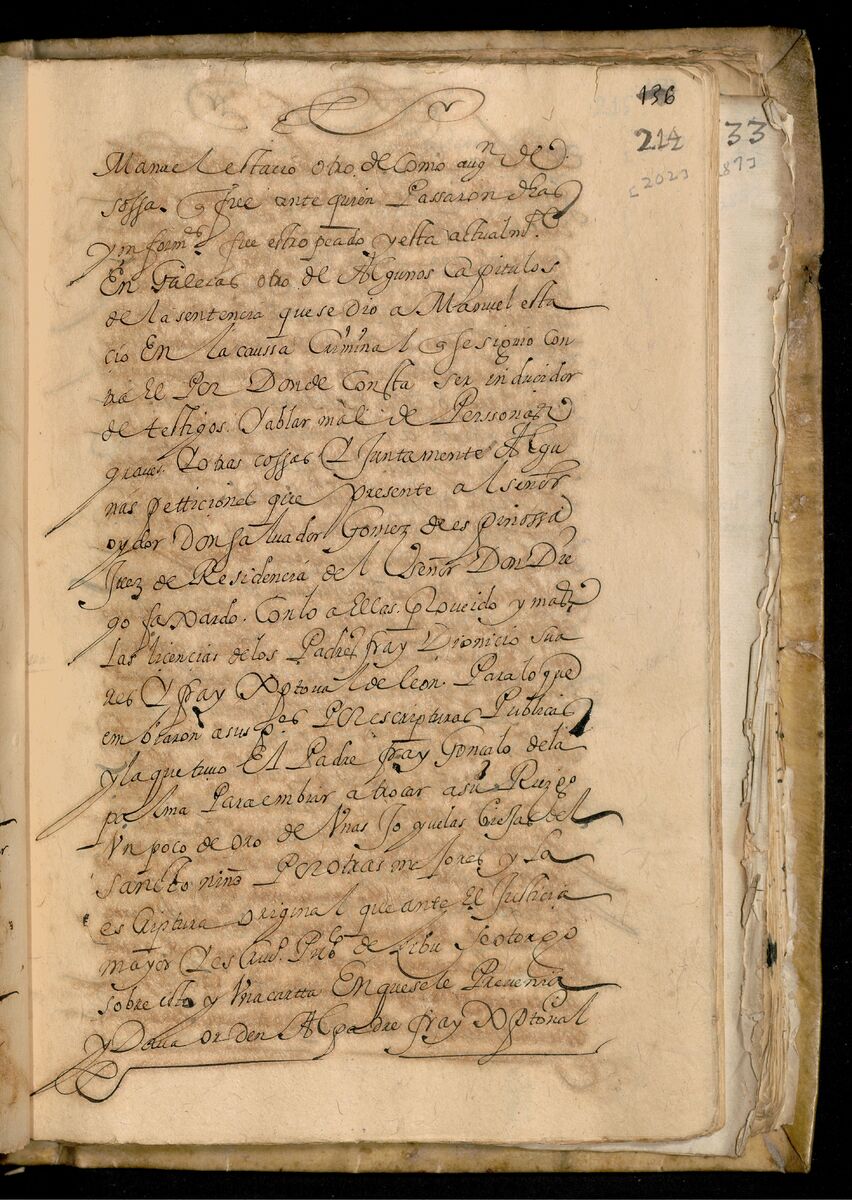 136
214
33
[202]
187]
Manuel estacio otro. de como augn de
sossa. q fue ante quien Passaron dhas
y ynform.s fue estropeado y esta actualmte
En Galeras otro. de Algunos Capitulos
de la sentencia que se dio a Manuel esta
cio En la caussa Criminal q se siguio con
tra El Por Donde Consta ser inducidor
de testigos. Y ablar mal de Perssonas
graues. Y otras cossas Y Juntamente Algu
nas petticiones que presente al señor
oydor Don Saluador Gomez de espinossa
Juez de Residencia del Señor Don Die
go faxardo. Con lo a Ellas. proueido y mas
Las licencias de los Padres fray Dionicio sua
res Y fray Xptoual de leon. Para lo que
embiaron a sus Pes Por escripturas Publicas
y la que tuuo El Padre fray Gonçalo de la
palma Para embiar a trocar a su Riezgo
Vn poco de oro de Vnas Joyuelas biejas del
sancto niño Por otras mejores y La
escriptura original que ante El Justicia
mayor Y escriu.º Pubco de Sibu Se otorgo
sobre esto y Vna cartta En que se le Preuenia
y Daua orden Al padre fray Xptoual